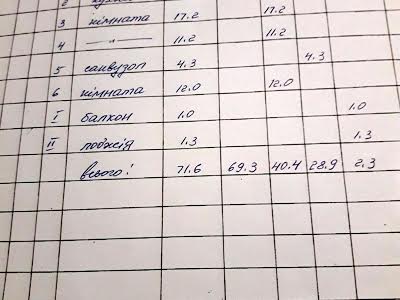 3 кімната 17.2 17.2
4 —〃— 11.2 11.2
5 санвузол 4.3 4.3
6 кімната 12.0 12.0
I балкон 1.0 1.0
II лоджія 1.3 1.3
всього: 71.6 69.3 40.4 28.9 2.3